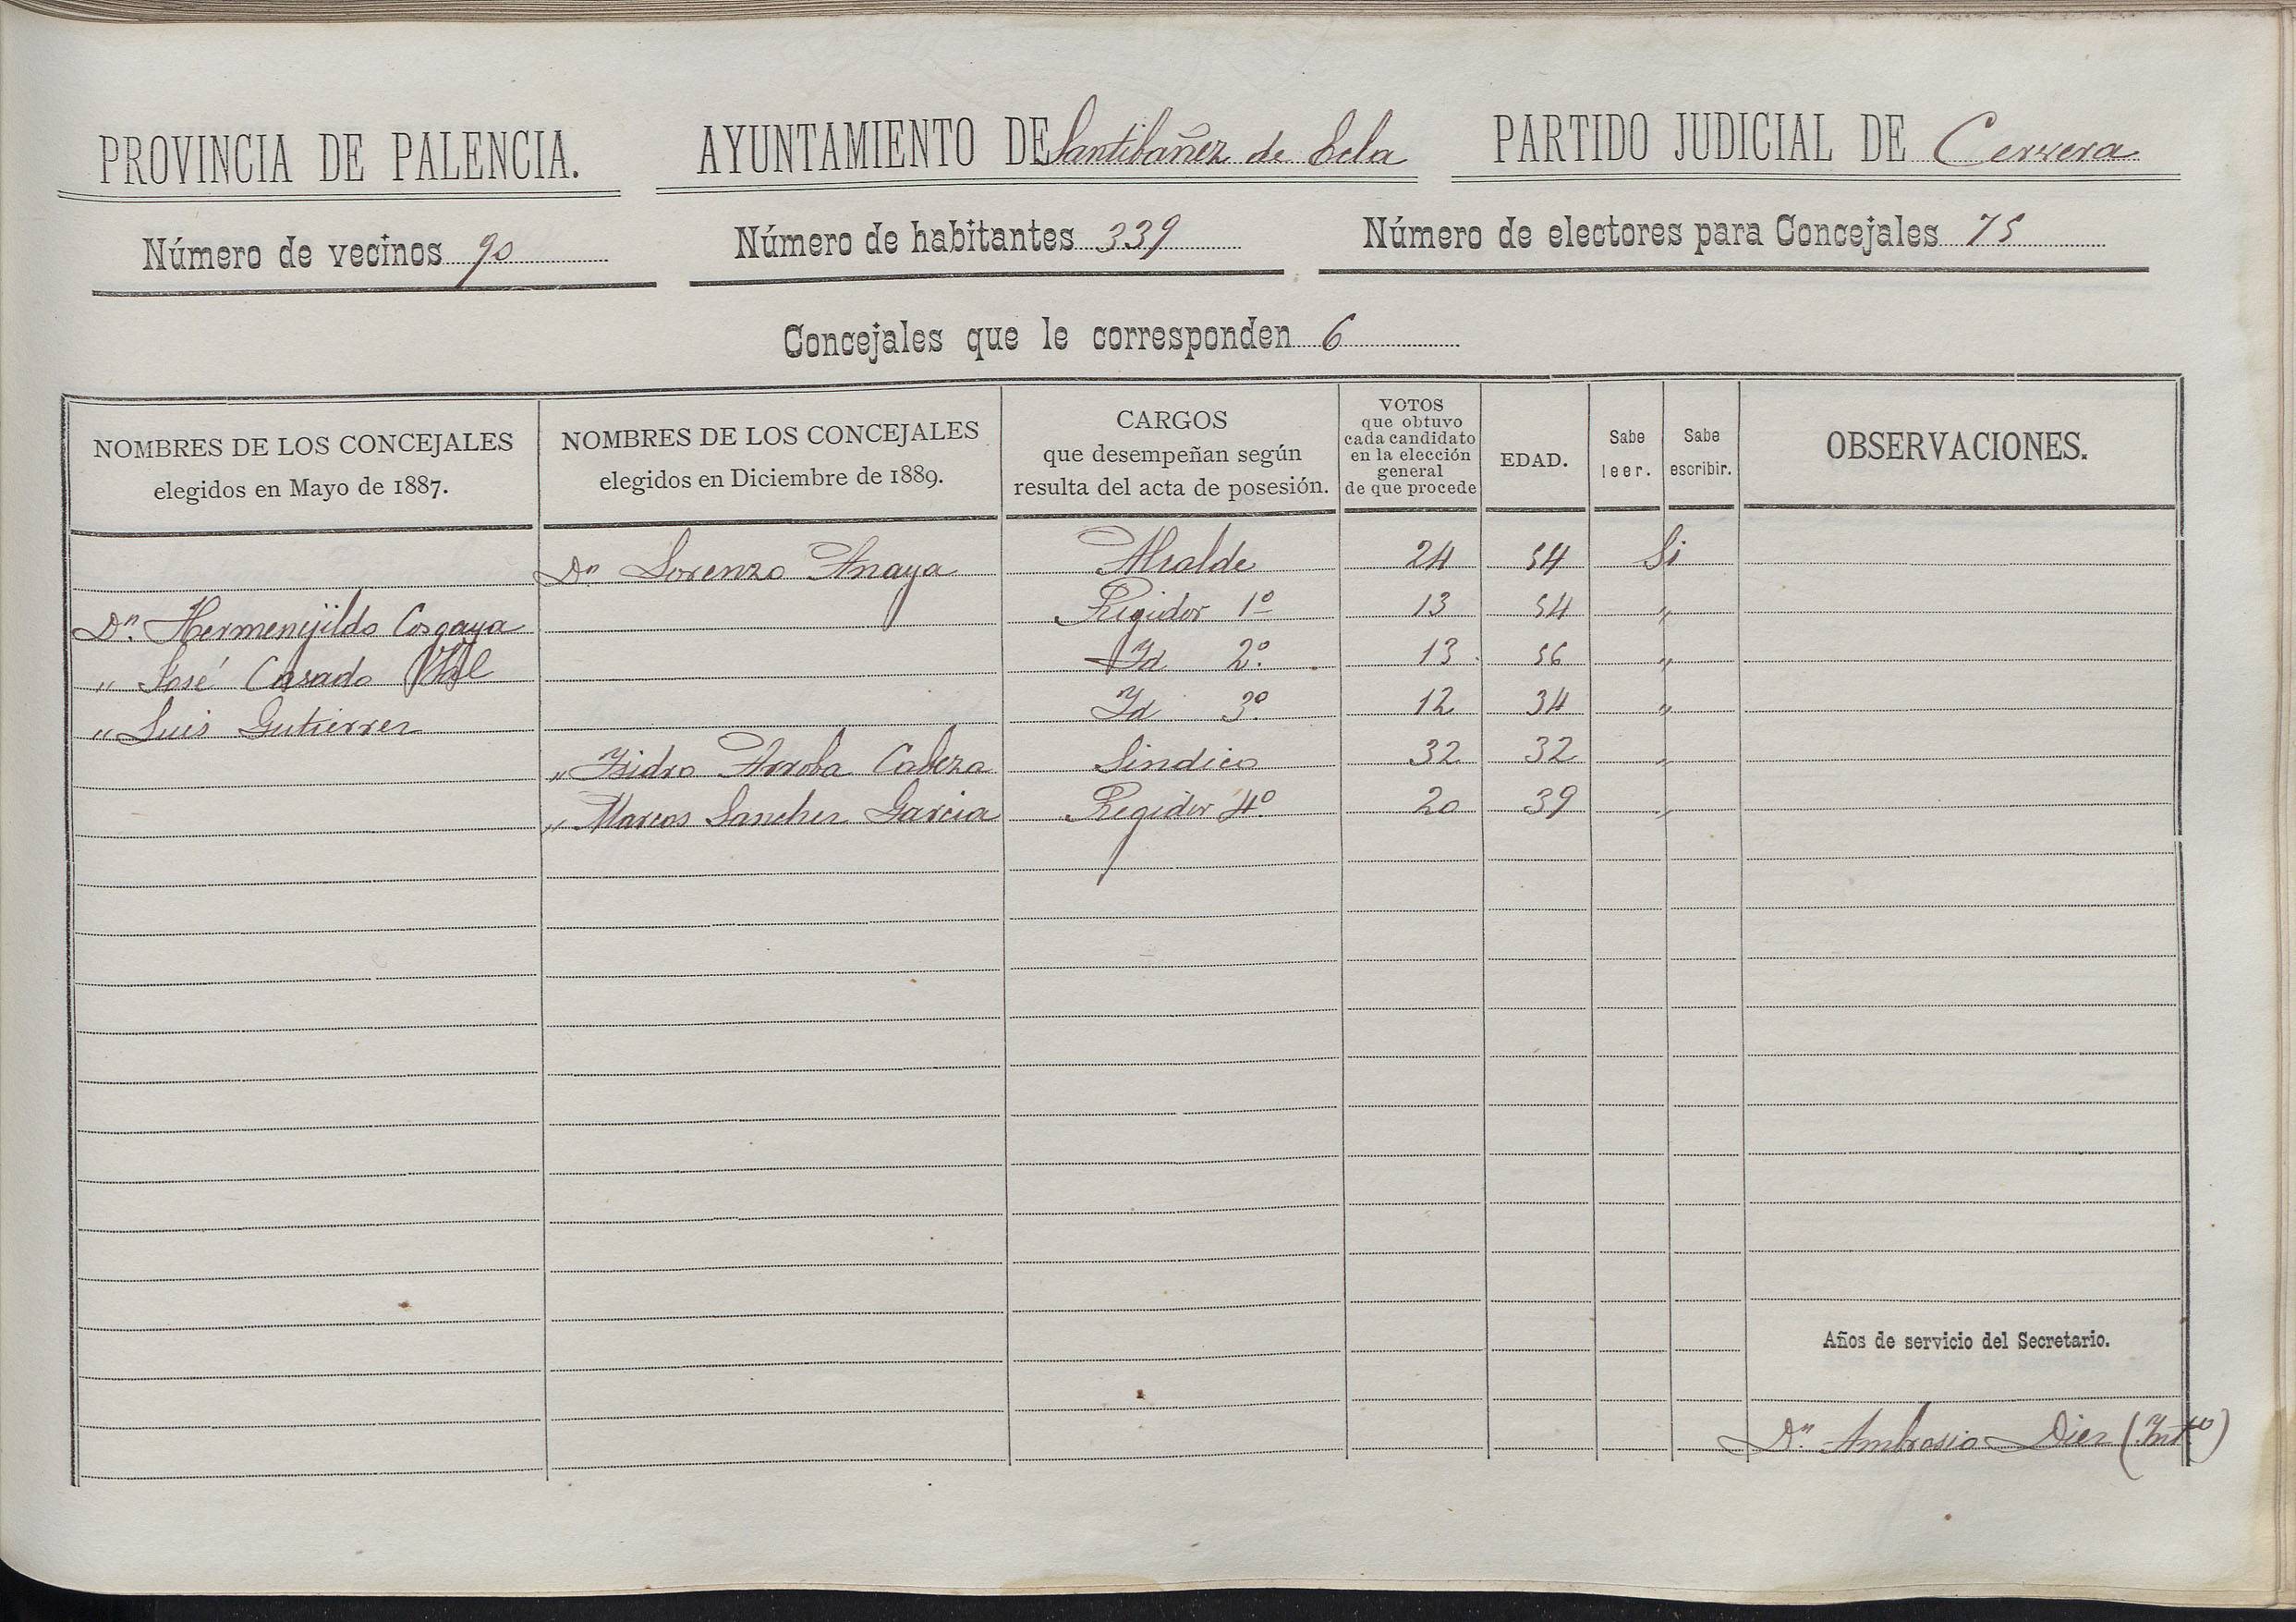 PROVINCIA DE PALENCIA. AYUNTAMIENTO DE Santibañez de Ecla PARTIDO JUDICIAL DE Cervera
Número de vecinos 90 Número de habitantes 339 Número de electores para Concejales 75
Concejales que le corresponden 6
NOMBRES DE LOS CONCEJALES elegidos en Mayo de 1887. NOMBRES DE LOS CONCEJALES elegidos en Diciembre de 1889. CARGOS que desempeñan según resulta del acta de posesión. VOTOS que obtuvo cada candidato en la elección general de que procede EDAD. Sabe leer. Sabe escribir. OBSERVACIONES.
Dn Lorenzo Anaya Alcalde 24 54 Si
Dn. Hermenejildo Cosgaya Regidor 1º 13 54 "
" José Casado Id 2º. 13 56 "
" Luis Gutierrez Id 3º. 12 34 "
" Isidro Arroba Cabeza Sindico 32 32 "
" Marcos Sanchez Garcia Regidor 4º. 20 39 "
Años de servicio del Secretario.
Dn. Ambrosio Diez (Intº)